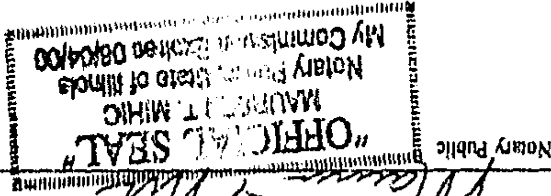 Notary Public
"OFFICIAL SEAL"
T. MIHIC
Notary Public, State of Illinois
My Commission Expires 08/04/00